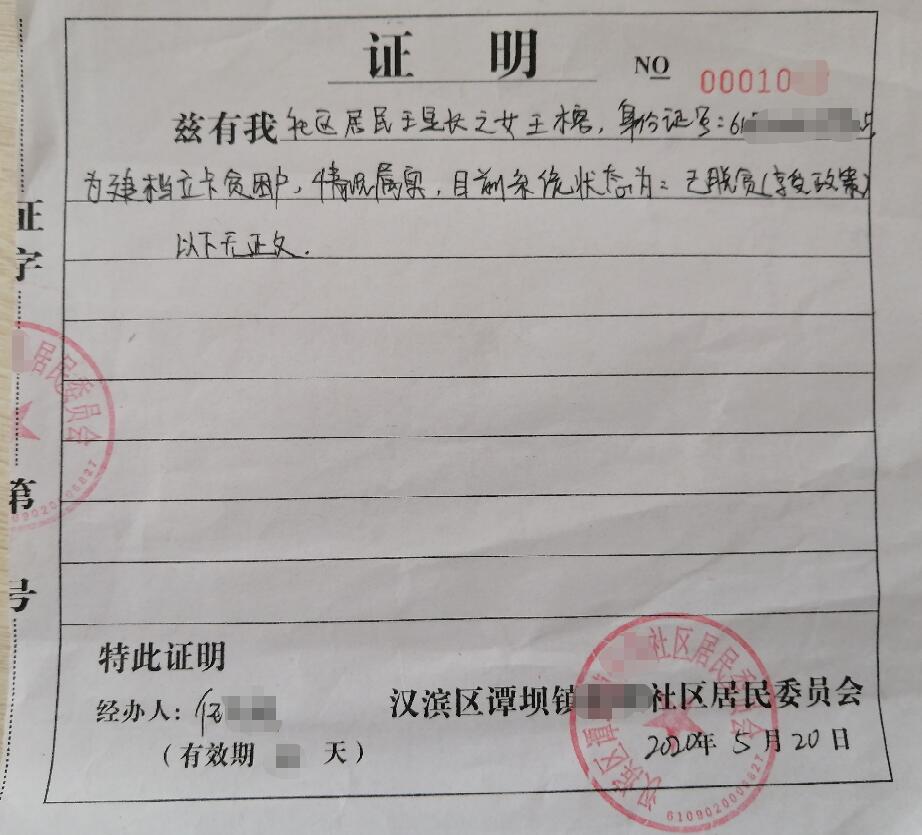 证 明
NO 00010
兹有我社区居民王星长之女王榕，身份证号：61
为建档立卡贫困户，情况属实，目前系统状态为：已脱贫（享受政策）
以下无正文.
特此证明
经办人：伍
（有效期 天）
汉滨区谭坝镇 社区居民委员会
2020年 5月20日
社区居民委员会
汉滨区谭
6109020006827
证字
第
号
居民委员会
6109020006827